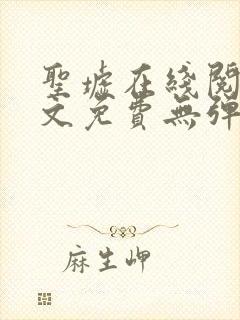 聖墟在綫閱
文免費無彈
麻生岬